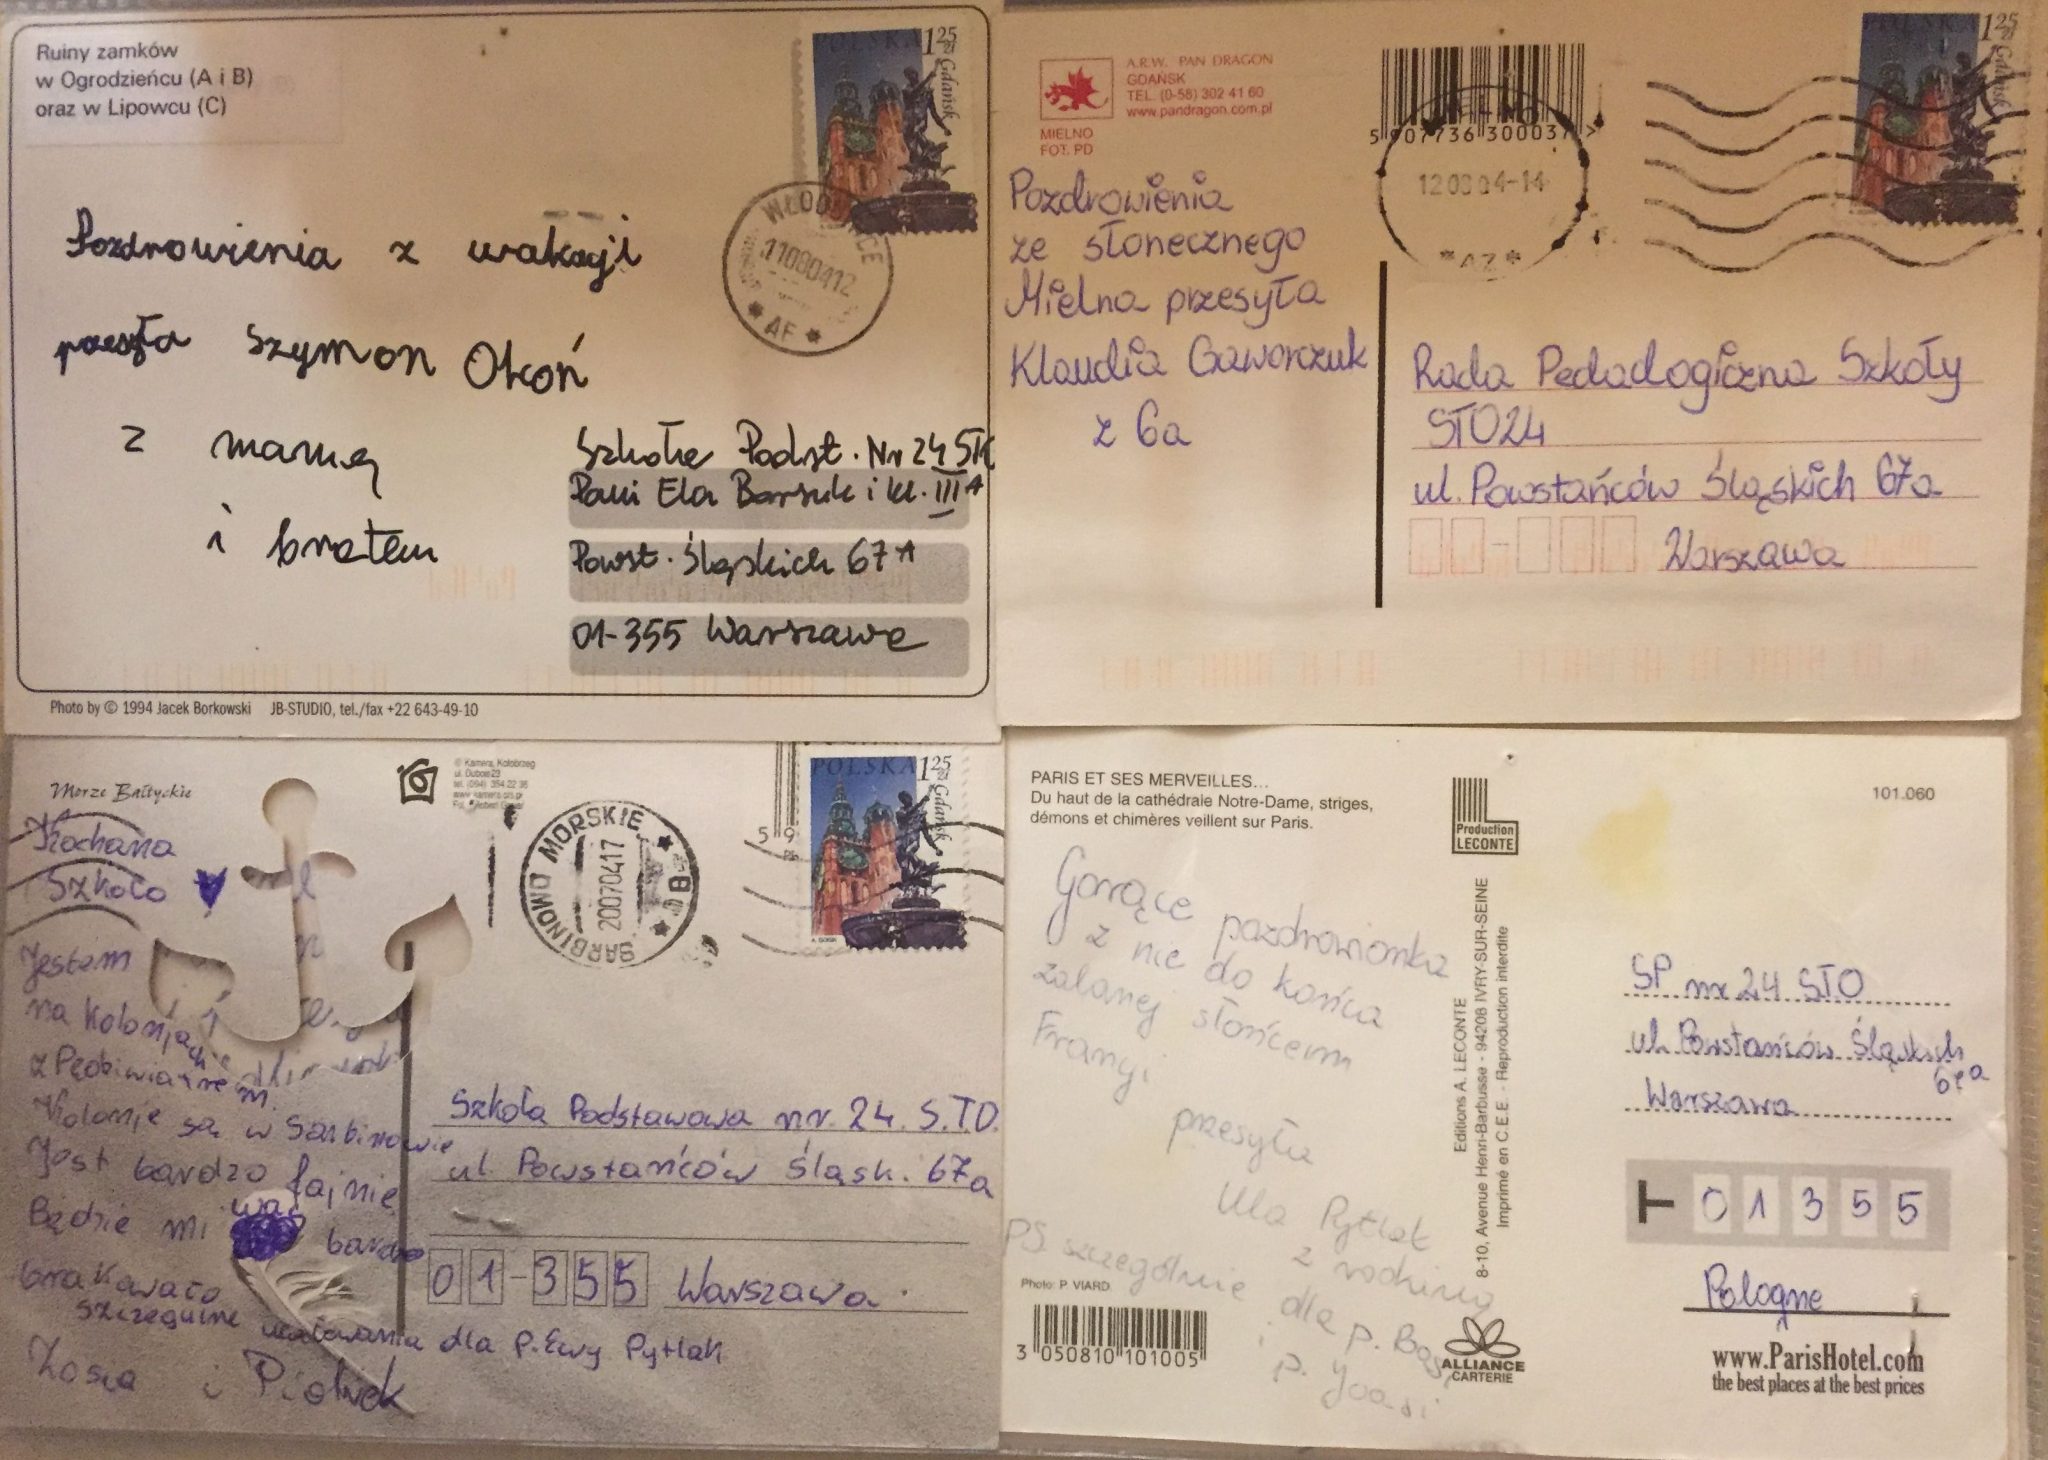 Ruiny zamków
w Ogrodzieńcu (A i B)
oraz w Lipowcu (C)
POLSKA 1 25 zł
Gdańsk
11080412
* AF *
Pozdrowienia z wakacji
przesyła Szymon Okoń
z mamą
i bratem
Szkoła Podst. Nr 24 STO
Pani Ela Barsuk i kl. III A
Powst. Śląskich 67 A
01-355 Warszawa
Photo by © 1994 Jacek Borkowski JB-STUDIO, tel./fax +22 643-49-10
A.R.W. PAN DRAGON
GDAŃSK
TEL. (0-58) 302 41 60
www.pandragon.com.pl
MIELNO
FOT. PD
5 907736 300037 >
POLSKA 1 25 zł
Gdańsk
MIELNO
120804-14
* AZ *
Pozdrowienia
ze słonecznego
Mielna przesyła
Klaudia Gaworczuk
z 6a
Rada Pedadogiczna Szkoły
STO24
ul. Powstańców Śląskich 67a
Warszawa
Morze Bałtyckie
© Kamera, Kołobrzeg
5 9
POLSKA 1 25 zł
Gdańsk
SARBINOWO MORSKIE
20070417
* B *
Kochana
Szkoło
Jestem
na kolonjach
z
Kolonje są w Sarbinowie
Jest bardzo fajnie
Będzie mi was bardzo
brakowało
szczegulne ucałowania dla p. Ewy Pytlak
Zosia i Piotrek
Szkoła Podstawowa nr. 24. S.T.O.
ul. Powstańców Śląsk. 67a
01-355 Warszawa.
PARIS ET SES MERVEILLES...
Du haut de la cathédrale Notre-Dame, striges,
démons et chimères veillent sur Paris.
Production
LECONTE
101.060
Gorące pozdrowionka
z nie do końca
zalanej słońcem
Francji
przesyła
Ula Pytlak
z rodziną
PS. szczególnie dla p. Basi
i p. Joasi
Photo: P. VIARD
3 050810 101005
Editions A. LECONTE
8-10, Avenue Henri-Barbusse - 94208 IVRY-SUR-SEINE
Imprimé en C.E.E. - Reproduction interdite
ALLIANCE
CARTERIE
SP nr 24 STO
ul. Powstańców Śląskich
67a
Warszawa
01355
Pologne
www.ParisHotel.com
the best places at the best prices